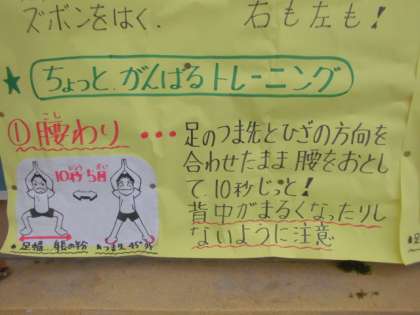 ズボンをはく. 右も左も!
★ ちょっと.がんばるトレーニング
①腰わり・・・
こし
足のつま先とひざの方向を
合わせたまま腰をおとし
て.10秒じっと!
背中がまるくなったりし
ないように注意
10秒 5回